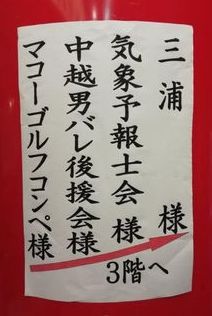 三浦 様
気象予報士会 様
中越男バレ後援会様
マコーゴルフコンペ様
3階へ